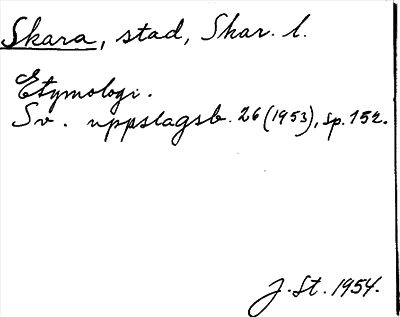 Skara, stad, Skar. l.
Etymologi.
Sv. uppslagsb. 26 (1953), sp. 152.
J. St. 1954.